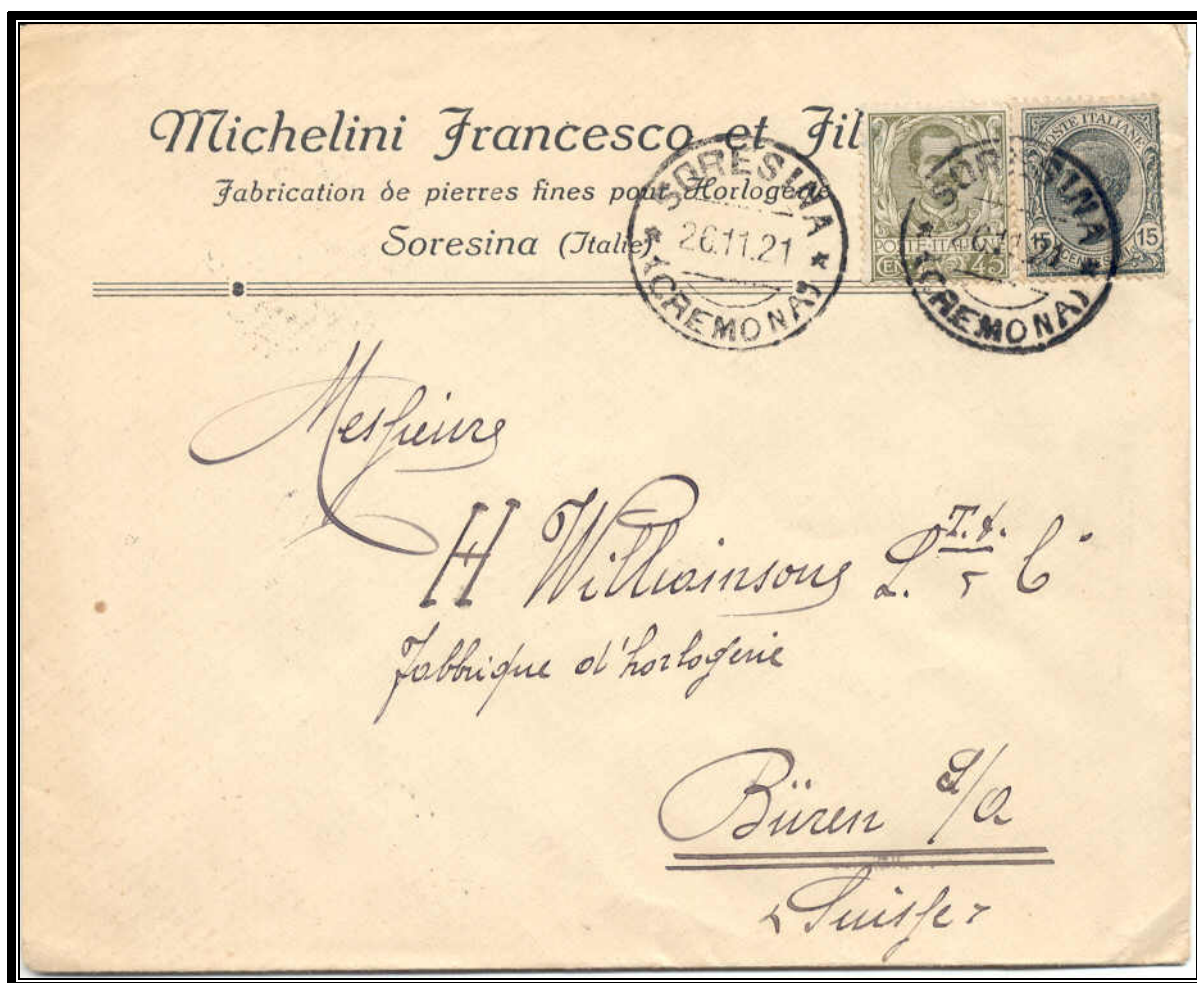 Michelini Francesco et Fil
Fabrication de pierres fines pour Horlogerie
Soresina (Italie)
SORESINA
26.11.21
(CREMONA)
POSTE ITALIANE
CENT. 45
SORESINA
26.11.21
(CREMONA)
POSTE ITALIANE
15 CENTESIMI 15
Messieurs
H Williamsons L. T.d. & C°
Fabbrique d'horlogerie
Büren s/a
Suisse